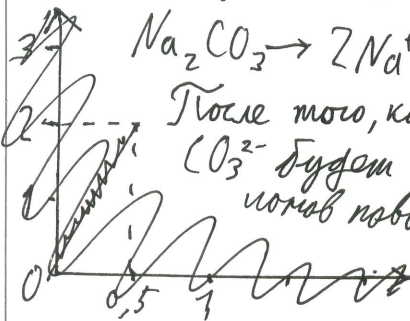 3 Na₂CO₃ → 2Na⁺
2 После того, ка
CO₃²⁻ будет
1 ионов пово
0 0,5 1